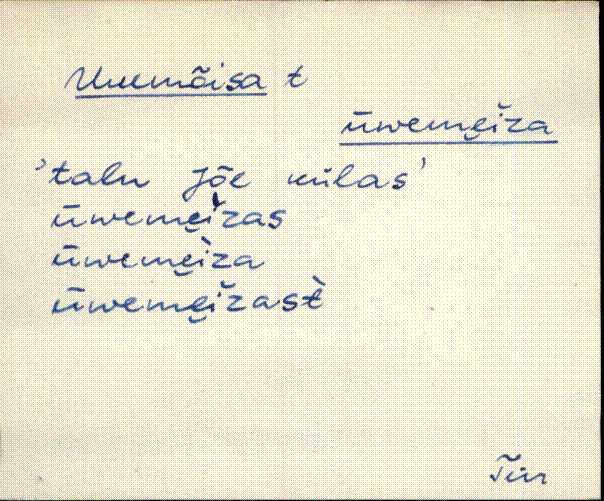 Uuemõisa t
ūwemęi̮za
'talu Jõe külas'
ūwemęìzas
ūwemęìza
ūwemęi̮zast̀
Tür